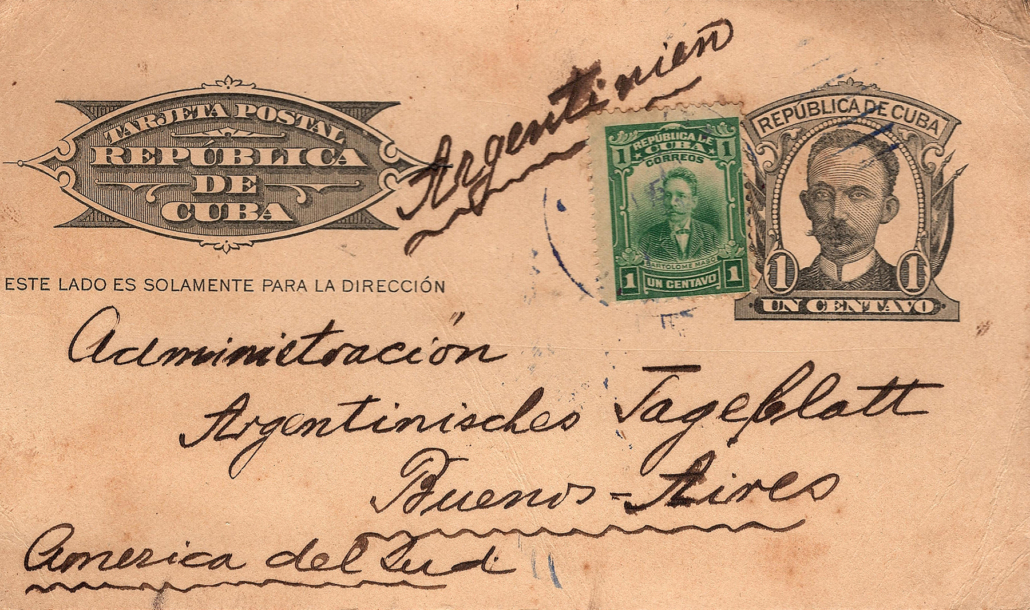 Argentinien
TARJETA POSTAL
REPÚBLICA
DE
CUBA
REPÚBLICA DE
CUBA
CORREOS
1 1
BARTOLOME MASO
1 UN CENTAVO 1
REPÚBLICA DE CUBA
1 1
UN CENTAVO
ESTE LADO ES SOLAMENTE PARA LA DIRECCIÓN
Administración
Argentinisches Tageblatt
Buenos-Aires
America del Sud